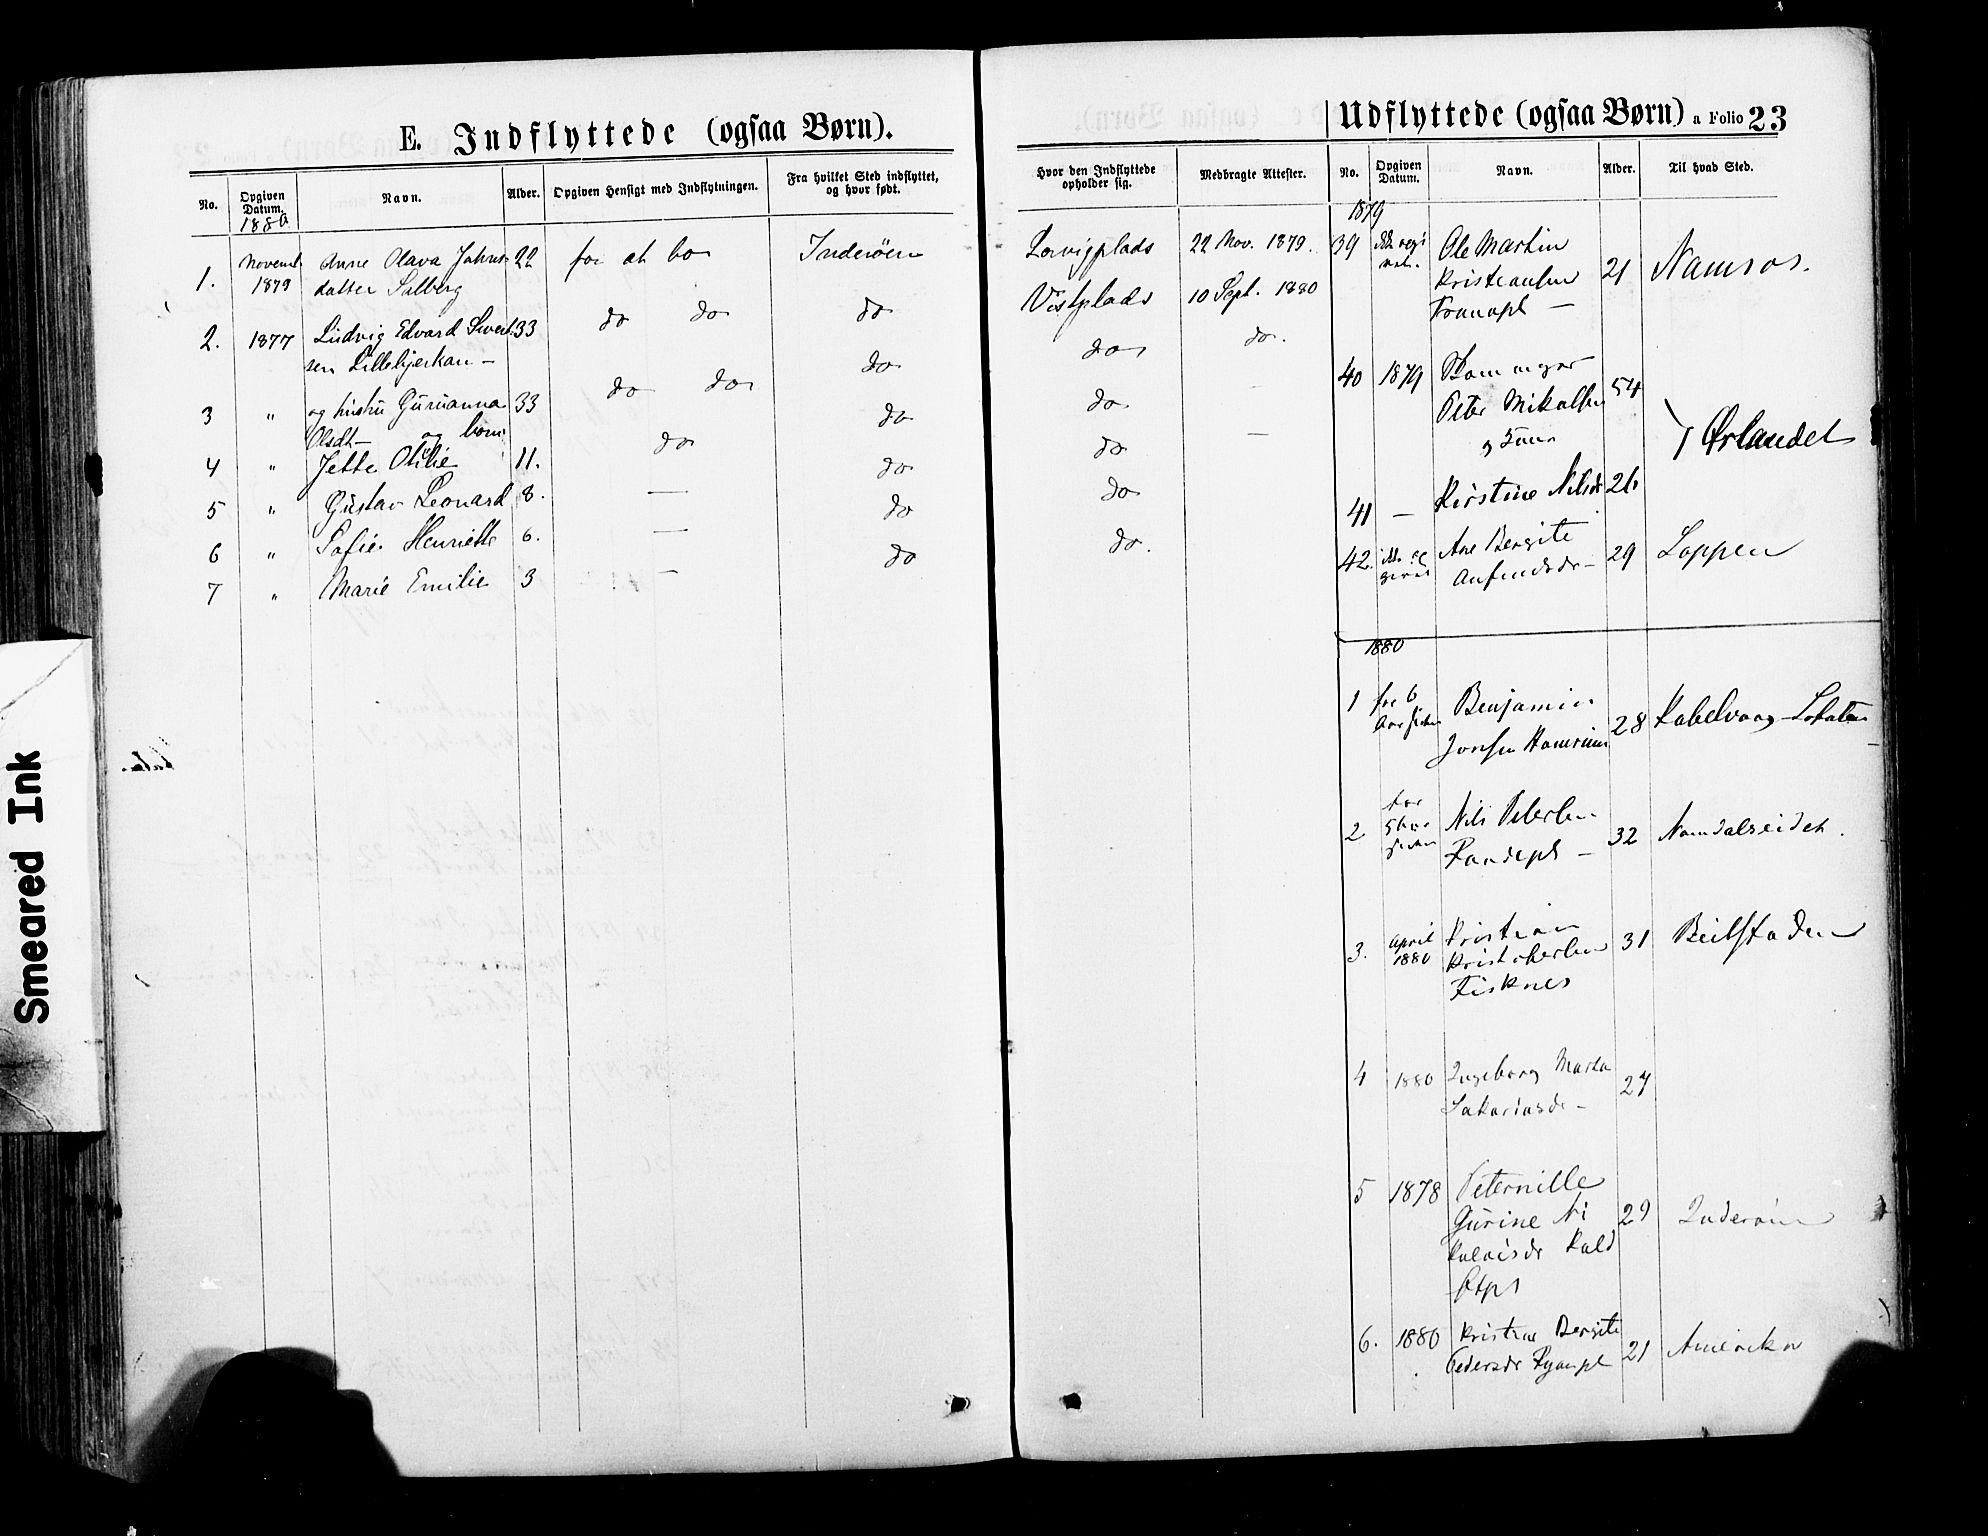 E. Indflyttede (ogsaa Børn).
No. Opgiven Datum. Navn. Alder. Opgiven Hensigt med Indflytningen. Fra hvilket Sted indflyttet, og hvor født.
1880
1. Novemb. 1879 Anne Olava Johns- 22 for at bo Inderöen
datter Salberg
2. 1877 Ludvig Edvard Sivert- 33 do do do
sen Lillebjerkan —
3 " og hustru Gurianna 33 do do do
Olsdt — og børn
4 " Jette Otilie 11. do do
5 " Gustav Leonard 8. — do
6 " Sofie Henriette 6. — do
7 " Marie Emilie 3 — do
Hvor den Indflyttede opholder sig. Medbragte Attester.
Lorvigplads 22 Nov. 1879.
Vistplads 10 Sept. 1880
do do.
do —
do —
do
do.
Udflyttede (ogsaa Børn) a Folio 23
No. Opgiven Datum. Navn. Alder. Til hvad Sted.
1879
39 Ole Martin
Kristiansen 21 Namsos.
40 1879
Peter Mikalsen 54
Ørlandet
41 — Kirstine Nilsdr 26
42. Ane Bergite
29 Loppen
1880
1 for 6 Benjamin
Aar siden Jonsen 28 Kabelvaag
2 for 5 Aar siden Nils Petersen 32 Namdalseidet.
3. April 1880 Kristian 31 Beitstaden
Kristofersen
Fisknes
4 1880 Ingeborg Marta 27
Sakariasdr —
5 1878 Peternille
Gurine Ni 29 Inderöen
kolaisdr
6. 1880 Kristine Bergite
Pedersdr 21 Amerika
Smeared Ink